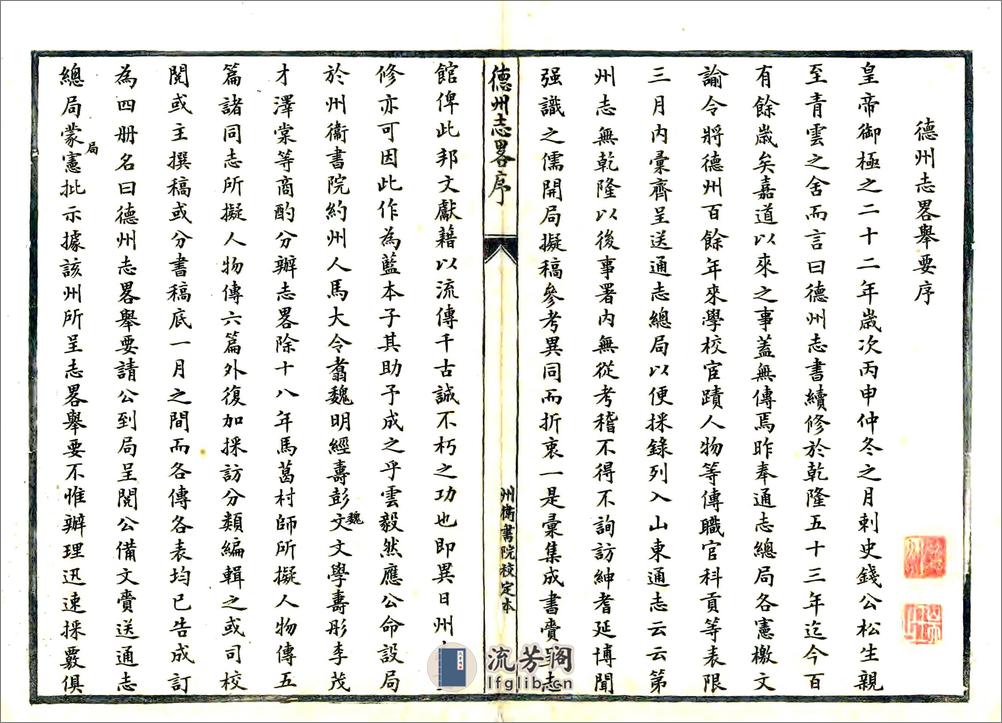 德州志畧舉要序
皇帝御極之二十二年歲次丙申仲冬之月刺史錢公松生親
至青雲之舍而言曰德州志書續修於乾隆五十三年迄今百
有餘歲矣嘉道以來之事蓋無傳焉昨奉通志總局各憲檄文
諭令將德州百餘年來學校官蹟人物等傳職官科貢等表限
三月內彙齊呈送通志總局以便採錄列入山東通志云云第
州志無乾隆以後事署內無從考稽不得不詢訪紳耆延博聞
强識之儒開局擬稿參考異同而折衷一是彙集成書賷志
德州志畧序
州衛書院校定本
館俾此邦文獻藉以流傳千古誠不朽之功也即異日州
修亦可因此作為藍本子其助予成之乎雲毅然應公命設局
於州衛書院約州人馬大令翥魏明經壽彭魏文文學壽彤李茂
才澤棠等商酌分辦志畧除十八年馬葛村師所擬人物傳五
篇諸同志所擬人物傳六篇外復加採訪分類編輯之或司校
閱或主撰稿或分書稿底一月之間而各傳各表均已告成訂
為四册名曰德州志畧舉要請公到局呈閱公備文賷送通志
總局蒙局憲批示據該州所呈志畧舉要不惟辦理迅速採覈俱
流芳阁
lfglib.cn